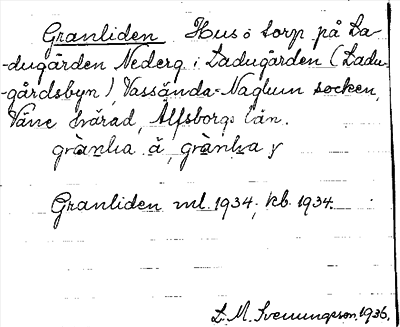 Granliden Hus o torp på La-
-dugården Nederg. i Ladugården (Ladu-
-gårdsbyn), Vassända-Naglum socken,
Väne härad, Älfsborgs län.
Granliden ml. 1934, kb. 1934.
L. M. Svenungsson. 1936.